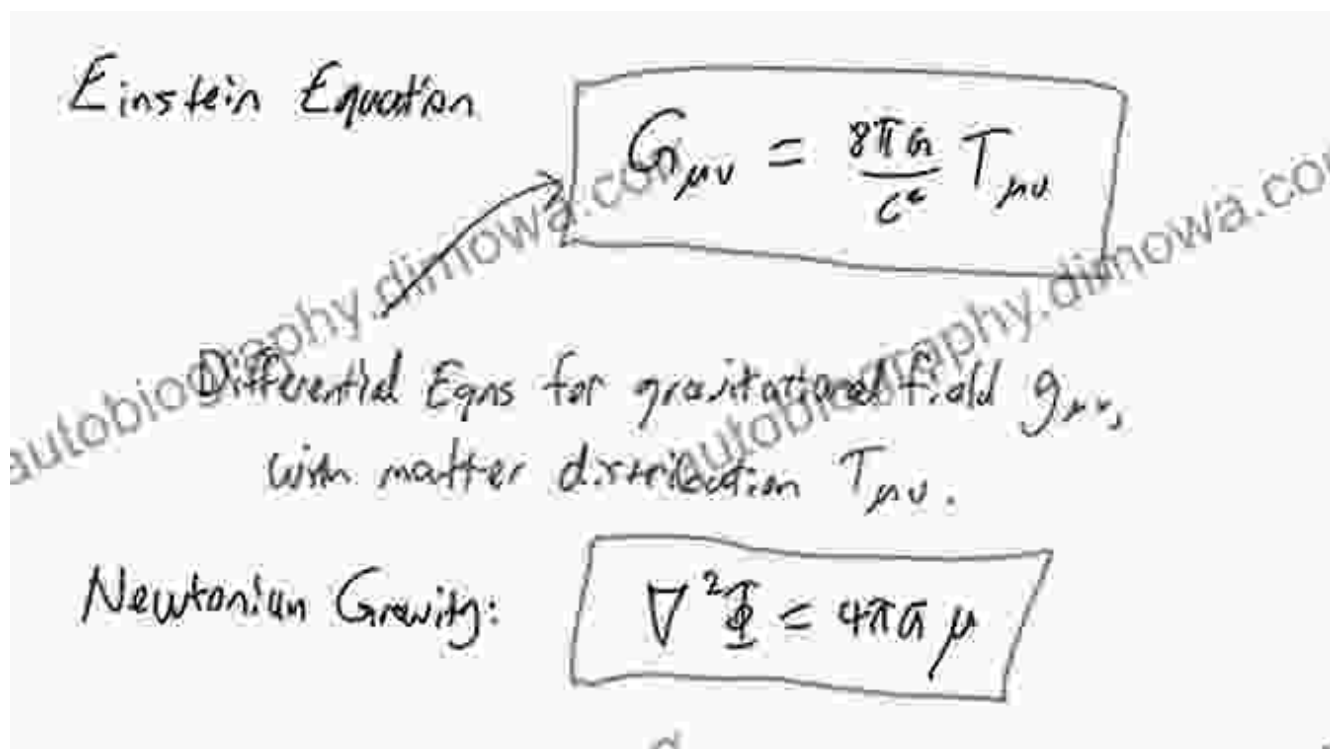 Einstein Equation
G_μν = 8πG/c⁴ T_μν
Differential Eqns for gravitational field g_μν,
with matter distribution T_μν.
Newtonian Gravity:
∇²Φ = 4πG μ
autobiography.dimowa.com
autobiography.dimowa.co